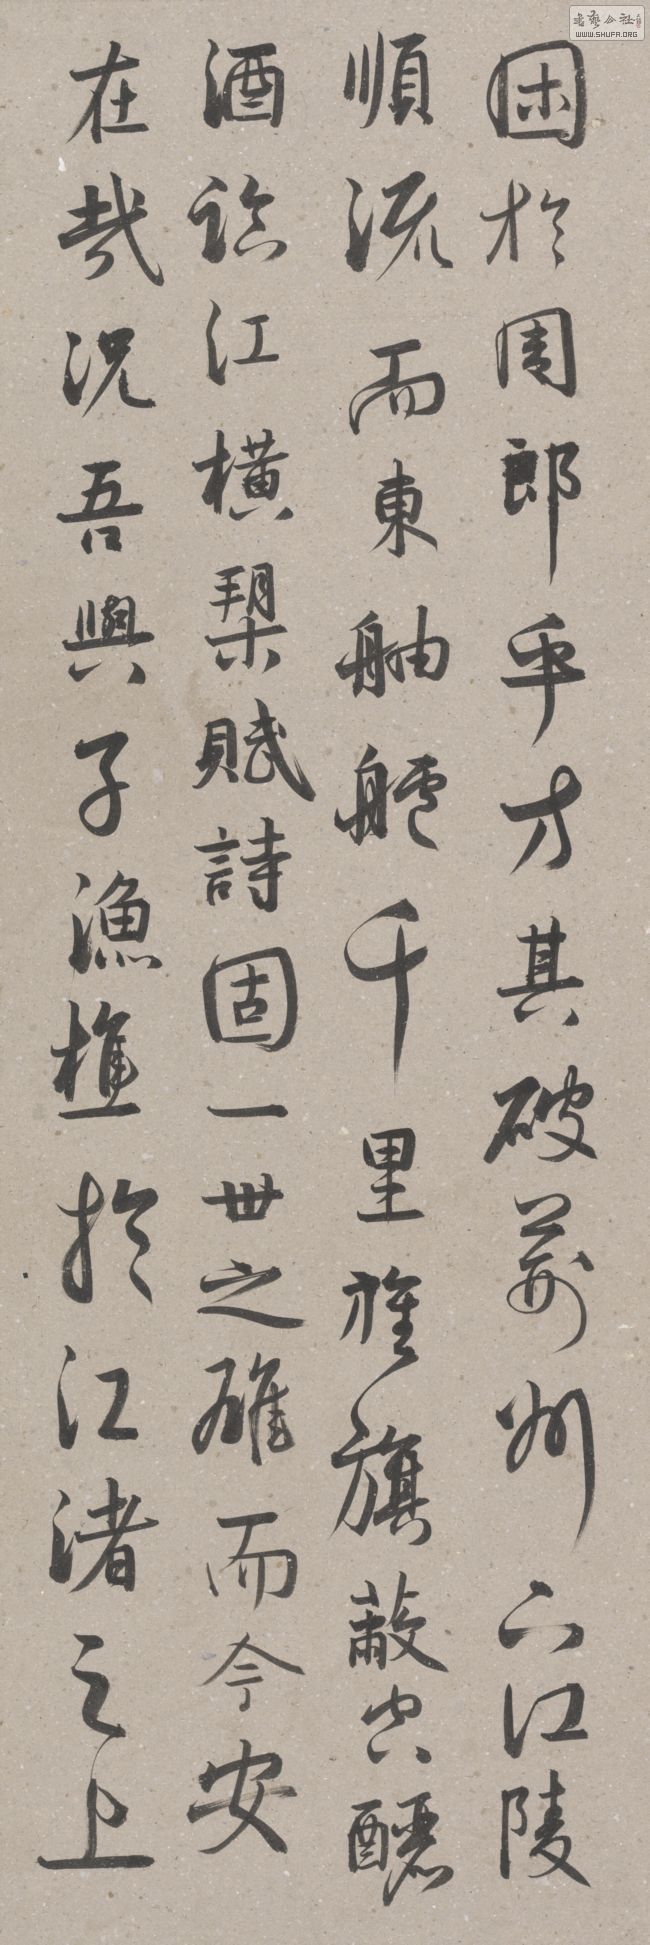 困於周郎乎方其破荊州下江陵
順流而東舳艫千里旌旗蔽空釃
酒臨江橫槊賦詩固一世之雄而今安
在哉況吾與子漁樵於江渚之上
書藝公社
WWW.SHUFA.ORG